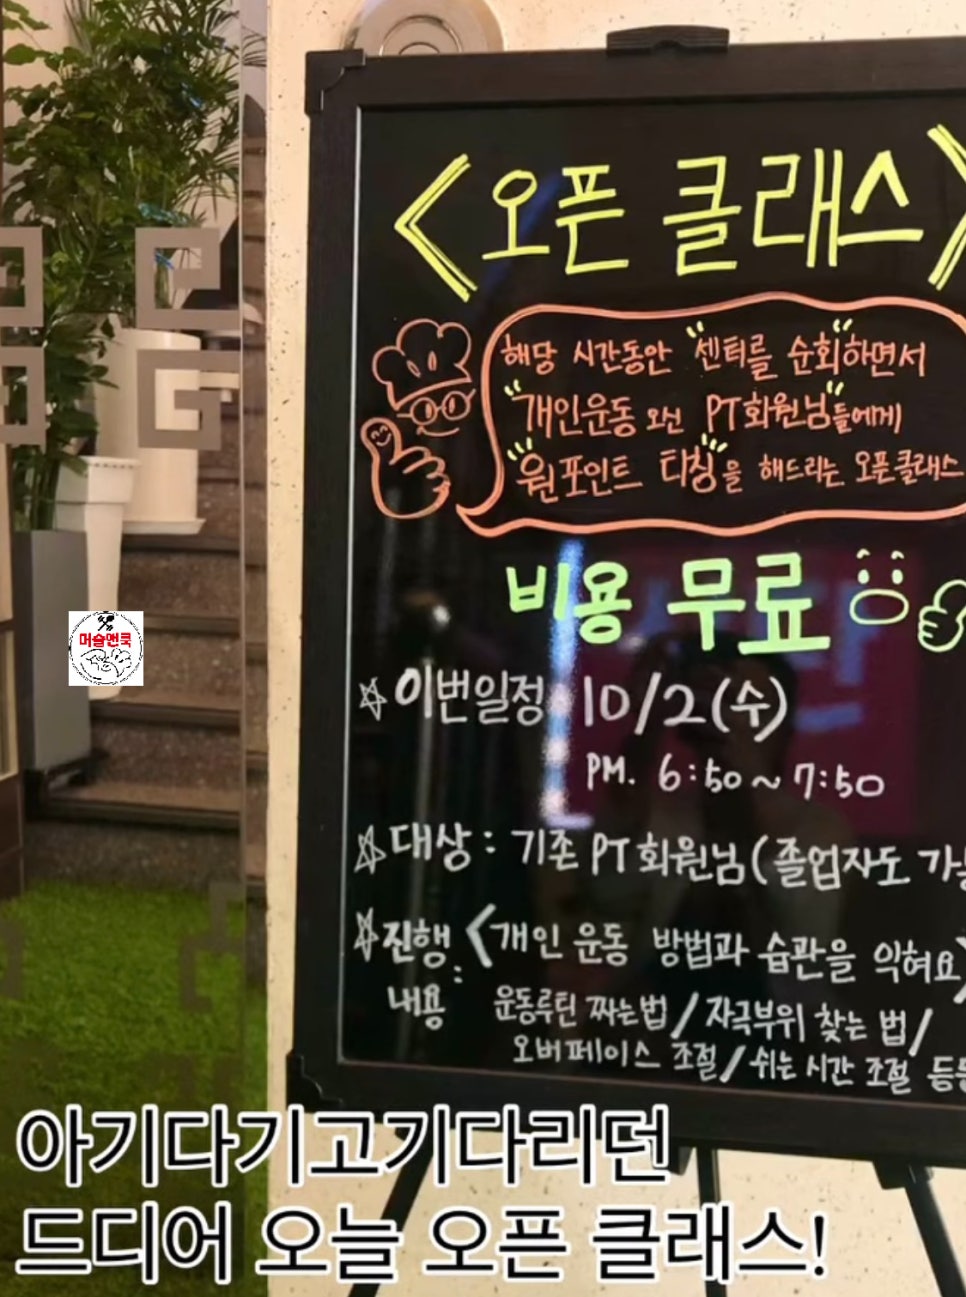 <오픈 클래스>
해당 시간동안 "센터를 순회"하면서
"개인운동 오신 PT회원님"들에게
"원포인트 티칭"을 해드리는 오픈클래스
비용 무료
머슬앤쿡
☆이번일정 10/2(수)
PM. 6:50~7:50
☆대상: 기존 PT회원님(졸업자도 가능
☆진행내용: <개인 운동 방법과 습관을 익혀요>
운동루틴 짜는법/자극부위 찾는 법/
오버페이스 조절/쉬는 시간 조절 등등
아기다기고기다리던
드디어 오늘 오픈 클래스!